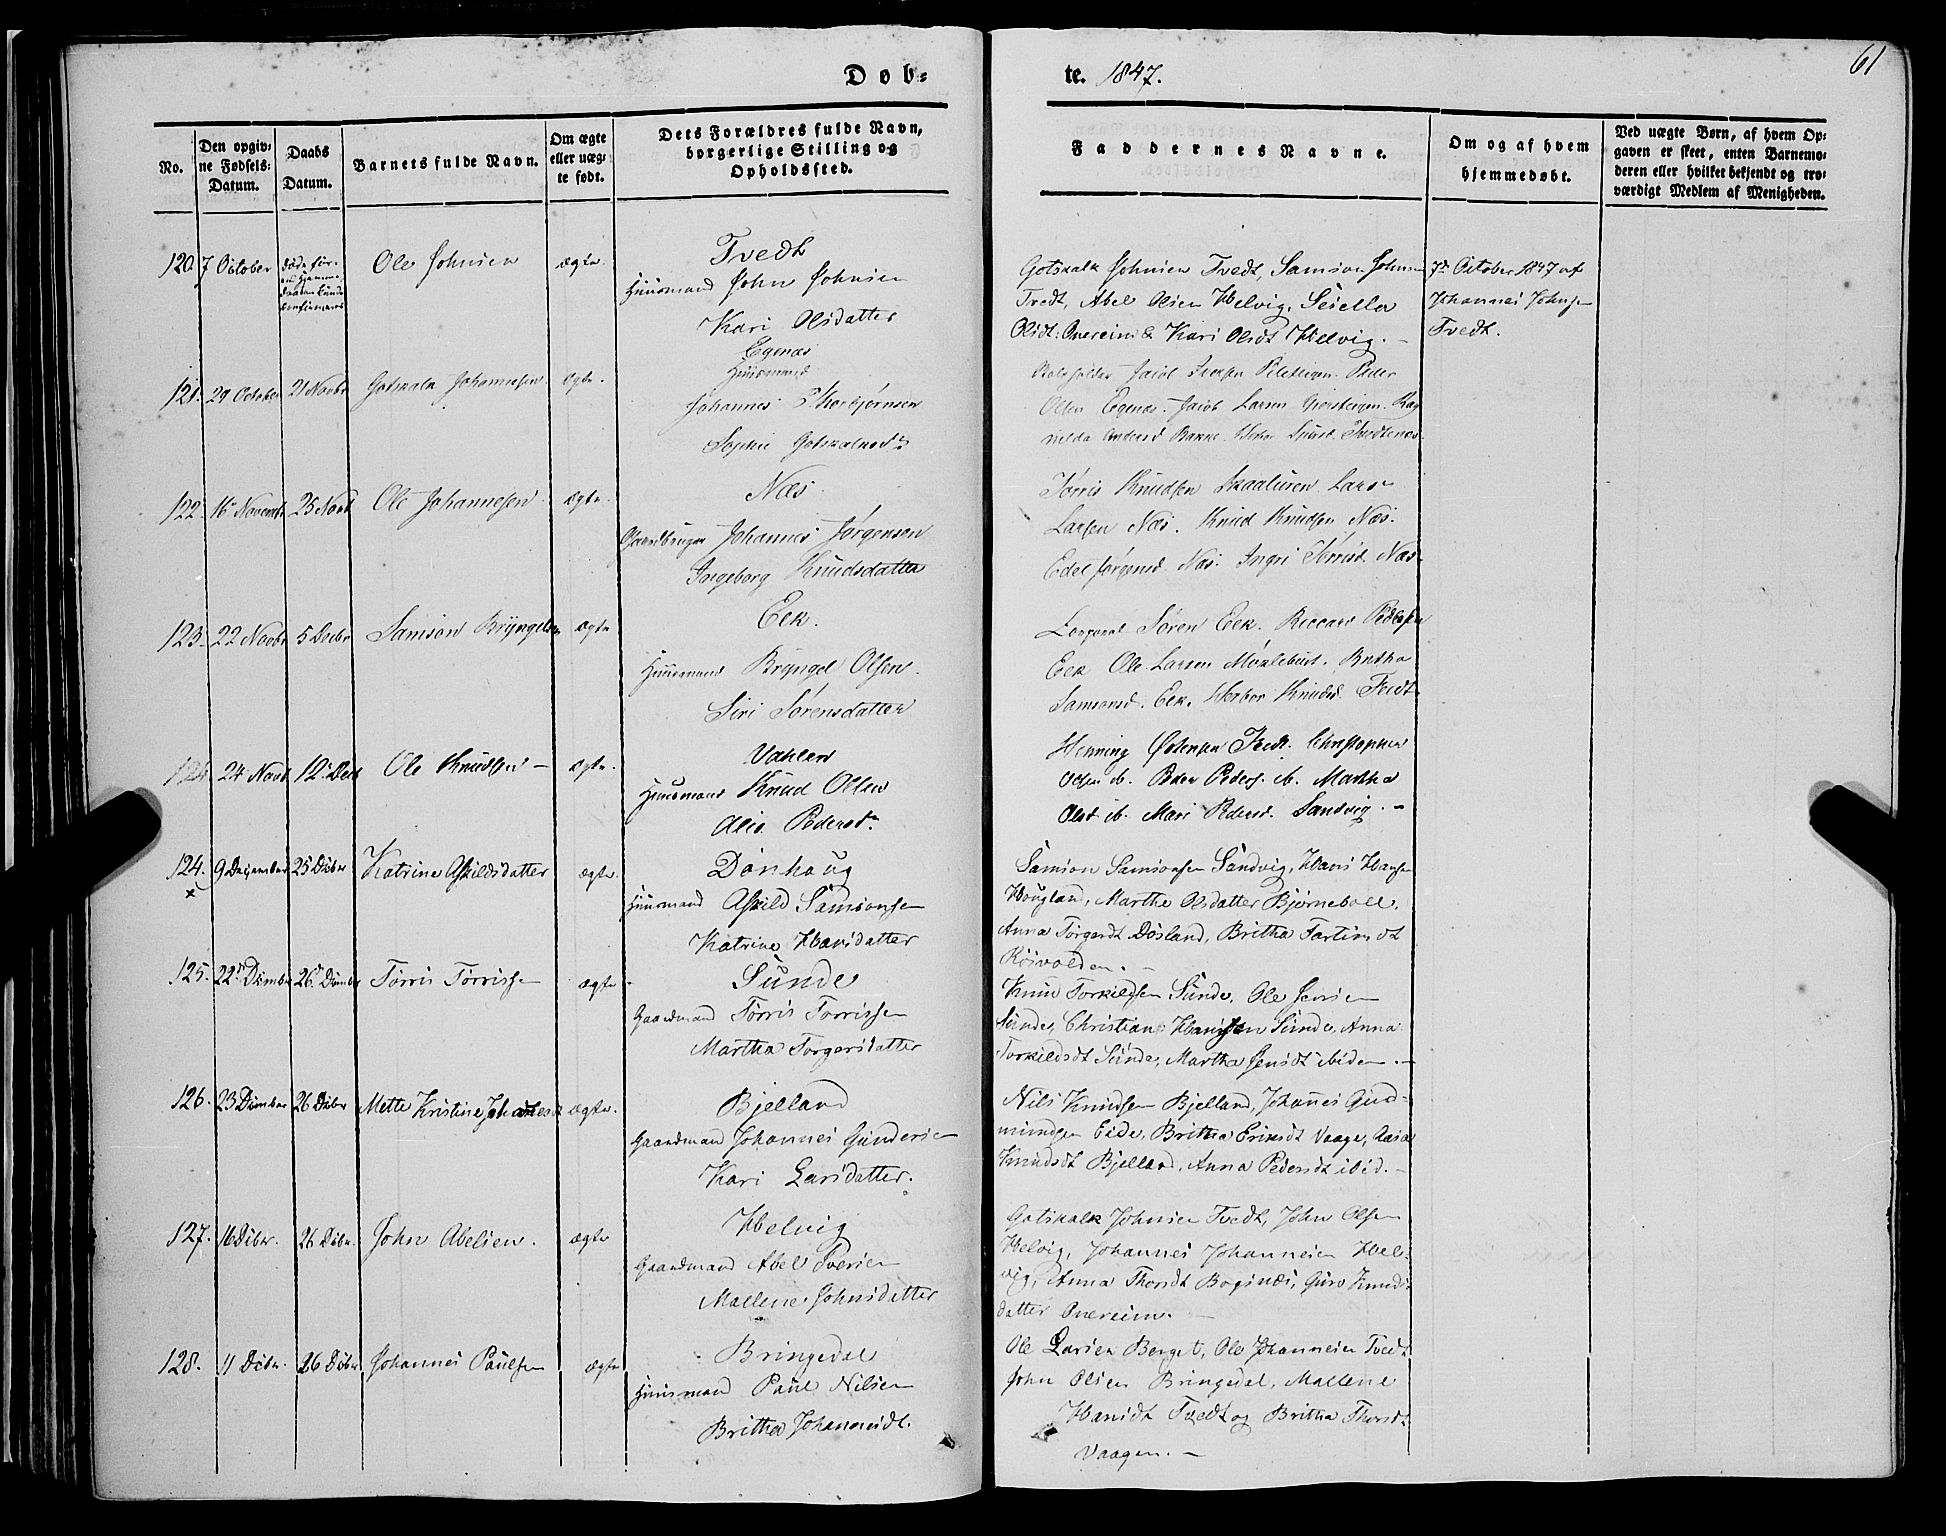 61
Døb-
te. 1847.
No.
Den opgiv-
ne Fødsels-
Datum.
Daabs
Datum.
Barnets fulde Navn.
Om ægte
eller uæg-
te født.
Dets Forældres fulde Navn,
borgerlige Stilling og
Opholdssted.
Faddernes Navne.
Om og af hvem
hjemmedøbt.
Ved uægte Børn, af hvem Op-
gaven er skeet, enten Barnemo-
deren eller hvilket bekjendt og tro-
værdigt Medlem af Menigheden.
120. 7 October
døde før
Ole Johnsen
ægte.
Tvedt
Huusmand John Johnsen
Kari Olsdatter
Gotskalk Johnsen Tvedt, Samson Johnsen
Tvedt, Abel Olsen Helvig, Sesella
Olsdt. Qvereim & Kari Olsdt Helvig.
7de October 1847 af
Johannes Johnsen
Tvedt.
121. 29 October 21 Novbr Gotskalk Johannesen ægte.
Egenæs
Huusmand
Johannes Thorbjørnsen
Sophie Gotskalksdtr
Jacob
Peder
Olsen Egenæs. Jacob Larsen
Andersd Bakke.
122. 16 Novembr 25 Novb Ole Johannesen ægte.
Næs
Gaardbruger Johannes Jørgensen
Ingeborg Knudsdatter
Tørris Knudsen Skaaluren Lars
Larsen Næs. Knud Knudsen Næs.
Edel Jørgensd. Næs. Ingri Tørrisd. Næs
123. 22 Novbr 5 Decbr Samson Bryngelsen ægte
Eek.
Huusmand Bryngel Olsen.
Siri Sørensdatter
Søren Eek. Riccard Pedersen
Eek Ole Larsen Brita
Samsonsd. Eek. Herbor Knudsd. Tvedt
24 Novb 12. Decb Ole Knudsen ægte.
Huusmand Knud Olsen
Pedersdr.
Henning Tvedt. Christopher
Olsen ib. Peder Peders. ib. Martha
Olsd ib. Mari Pedersd. Sandvig.
124. 9 December 25 Dcbr Katrine Askildsdatter ægte.
x
Dønhaug
Huusmand Askild Samsonsen
Katrine Hansdatter
Samson Samsonsen Sandvig, Hans Hansen
Hougland, Martha Olsdatter Bjørneboll,
Anna Torgersdt Døsland, Britha
125. 22de Dcmbr 26de Dcmbr Tørris Tørrissen ægte
Sunde
Gaardmand Tørris Tørrissen
Martha Torgersdatter
Knud Torkildsen Sunde, Ole Jensen
Sunde, Christian Hansen Sunde, Anna
Torkildsdt Sunde, Martha Jensdt ibidem.
126. 23 Dcmbr 26 Dcbr Mette Kristine ægte.
Bjelland
Gaardmand Johannes Gundersen
Kari Larsdatter.
Nils Knudsen Bjelland, Johanes Gud-
mundsen Eide, Britha Eriksdt Vaage, Aasa
Knudsdt Bjelland, Anna Pedersdt ibid.
127. 16 Dcbr. 26 Dcbr. John Abelsen. ægte
Helvig
Gaardmand Abel Iversen
Mallene Johnsdatter
Gotskalk Johnsen Tvedt, John Olsen
Helvig, Johannes Johannesen Hel-
vig, Anna Thorsdt Bogsnæs, Guro Knuds-
datter Qvereim.
128. 11 Dcbr. 26 Dcbr. Johannes Paulsen ægte
Bringedal
Huusmand Paul Nilsen
Britha Johannesdt.
Ole Larsen Berget, Ole Johannesen Tvedt
John Olsen Bringedal, Mallene
Hansdt Tvedt og Britha Thorsdt
Vaagen.